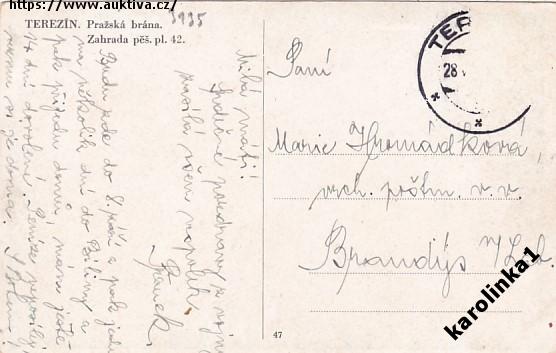 https://www.auktiva.cz/
1935
TEREZÍN. Pražská brána.
Zahrada pěš. pl. 42.
Milá máti!
Srdečné pozdravy z vojny
posílá všem napořád
Franek.
Budu zde do 8. září a pak jedu
na několik dní do
pak přijedu domů, mám ještě
14 dní dovolené.
TER
28
Paní
Marie Hromádková,
vrch. poštm. v. v.
Brandýs n/Lab.
47
karolinka1